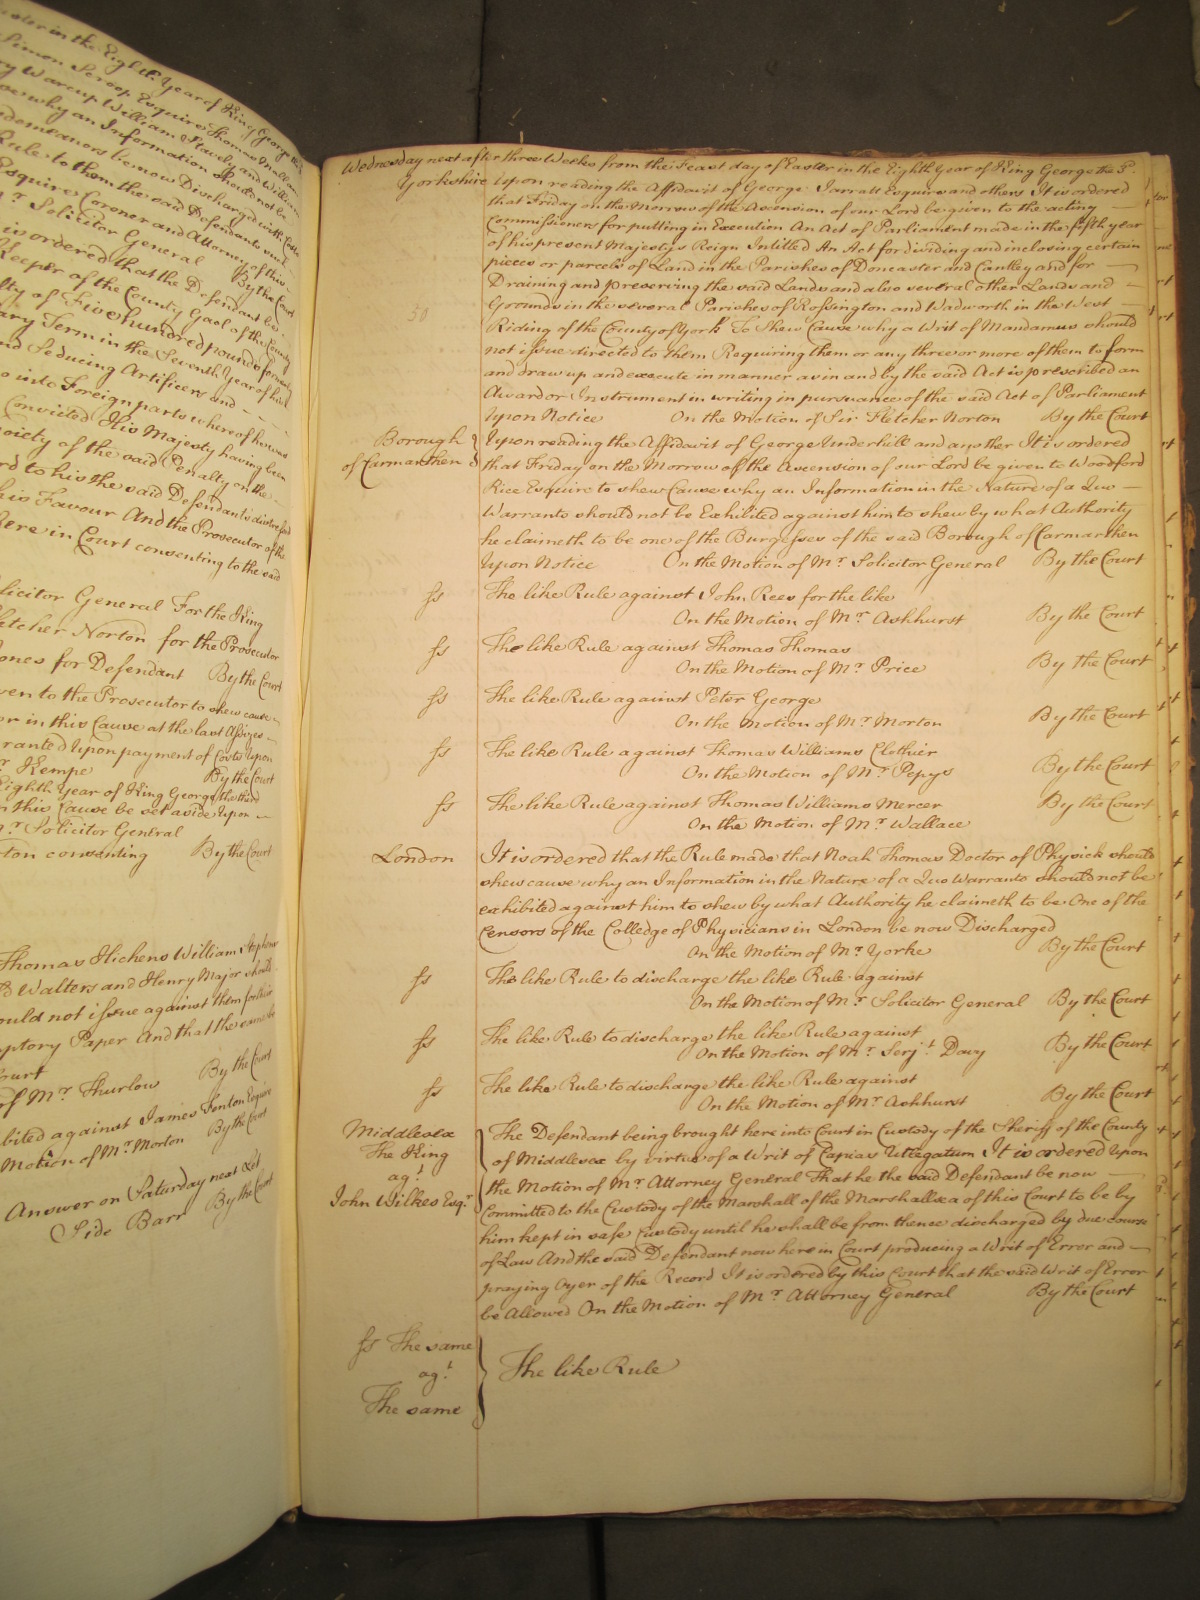 ster in the Eighth Year of King George the
Simon Scroop Esquire Thomas
ry Warcup William Stavely and William
ewhy an Information should not be
demeanors be now Discharged with Costs
Rule to them the said Defendants
Esquire Coroner and Attorney of this
r. Solicitor General By the Court
is ordered that the Defendant be
Keeper of the County Gaol of the County
lty of Five hundred pounds
ary Term in the Seventh Year of his
nd Seducing Artificers and
o into Foreign parts whereof he was
Convicted His Majesty having been
oiety of the said Penalty on the
rd to his the said Defendants
his Favour And the Prosecutor of the
here in Court consenting to the said
licitor General For the King
letcher Norton for the Prosecutor
ones for Defendant By the Court
ven to the Prosecutor to shew cause
or in this Cause at the last Assizes
ranted Upon payment of Costs Upon
r. Kempe By the Court
Eighth Year of King George the third
n this Cause be set aside Upon
r. Solicitor General
ton consenting By the Court
Thomas Hichens William Stephens
d Walters and Henry Major should
ould not issue against them for their
mptory Paper And that the same be
Court
of Mr. Thurlow By the Court
bited against James Fenton Esquire
Motion of Mr. Morton By the Court
Answer on Saturday next Let
Side Barr By the Court
Wednesday next after three Weeks from the Feast day of Easter in the Eighth Year of King George the 3d.
Yorkshire Upon reading the Affidavit of George Jarratt Esquire and others It is ordered
that Friday on the Morrow of the Ascension of our Lord be given to the acting
Commissioners for putting in Execution An Act of Parliament made in the fifth year
of his present Majestys Reign Intitled An Act for dividing and inclosing certain
pieces or parcels of Land in the Parishes of Doncaster and Cantley and for
Draining and preserving the said Lands and also several other Lands and
Grounds in the several Parishes of Rossington and Wadworth in the West
30
Riding of the County of York To Shew Cause why a Writ of Mandamus should
not issue directed to them Requiring them or any three or more of them to form
and draw up and execute in manner as in and by the said Act is prescribed an
Award or Instrument in writing in pursuance of the said Act of Parliament
Upon Notice On the Motion of Sir Fletcher Norton By the Court
Borough of Carmarthen Upon reading the Affidavit of George Underhill and another It is ordered
that Friday on the Morrow of the Ascension of our Lord be given to Woodford
Rice Esquire to shew Cause why an Information in the Nature of a Quo
Warranto should not be Exhibited against him to shew by what Authority
he claimeth to be one of the Burgesses of the said Borough of Carmarthen
Upon Notice On the Motion of Mr. Solicitor General By the Court
ss The like Rule against John Rees for the like
On the Motion of Mr. Ashhurst By the Court
ss The like Rule against Thomas Thomas
On the Motion of Mr. Price By the Court
ss The like Rule against Peter George
On the Motion of Mr. Morton By the Court
ss The like Rule against Thomas Williams Clothier
On the Motion of Mr. Pepys By the Court
ss The like Rule against Thomas Williams Mercer By the Court
On the Motion of Mr. Wallace
London It is ordered that the Rule made that Noah Thomas Doctor of Physick should
shew cause why an Information in the Nature of a Quo Warranto should not be
exhibited against him to shew by what Authority he claimeth to be One of the
Censors of the Colledge of Physicians in London be now Discharged
On the Motion of Mr. Yorke By the Court
ss The like Rule to discharge the like Rule against
On the Motion of Mr. Solicitor General By the Court
ss The like Rule to discharge the like Rule against
On the Motion of Mr. Serjt. Davy By the Court
ss The like Rule to discharge the like Rule against
On the Motion of Mr. Ashhurst By the Court
Middlesex The Defendant being brought here into Court in Custody of the Sheriff of the County
The King of Middlesex by virtue of a Writ of Capias Utlegatum It is ordered Upon
agt. the Motion of Mr. Attorney General That he the said Defendant be now
John Wilkes Esqr. Committed to the Custody of the Marshall of the Marshallsea of this Court to be by
him kept in safe Custody until he shall be from thence discharged by due course
of Law And the said Defendant now here in Court producing a Writ of Error and
praying Oyer of the Record It is ordered by this Court that the said Writ of Error
be Allowed On the Motion of Mr. Attorney General By the Court
ss The same
agt. The like Rule
The same